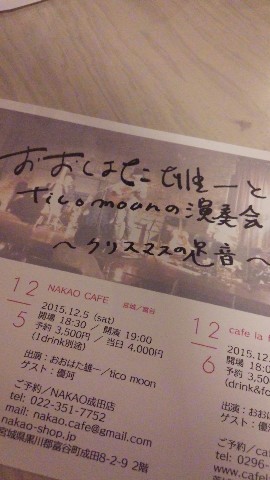 おおはた雄一と
tico moonの演奏会
〜クリスマスの足音〜
12/5
NAKAO CAFE 宮城／富谷
2015.12.5 (sat)
開場 18:30 / 開演 19:00
予約 3,500円 / 当日 4,000円
(1drink別途)
出演：おおはた雄一/tico moon
ゲスト：優河
ご予約／NAKAO成田店
tel: 022-351-7752
mail: nakao.cafe@gmail.com
nakao-shop.jp
宮城県黒川郡富谷町成田8-2-9 2階
12/6
cafe la
2015.12
開場
予約 3,50
(drink&fo
出演：おおは
ゲスト：優河
ご予約／
tel: 0296-
www.cafela